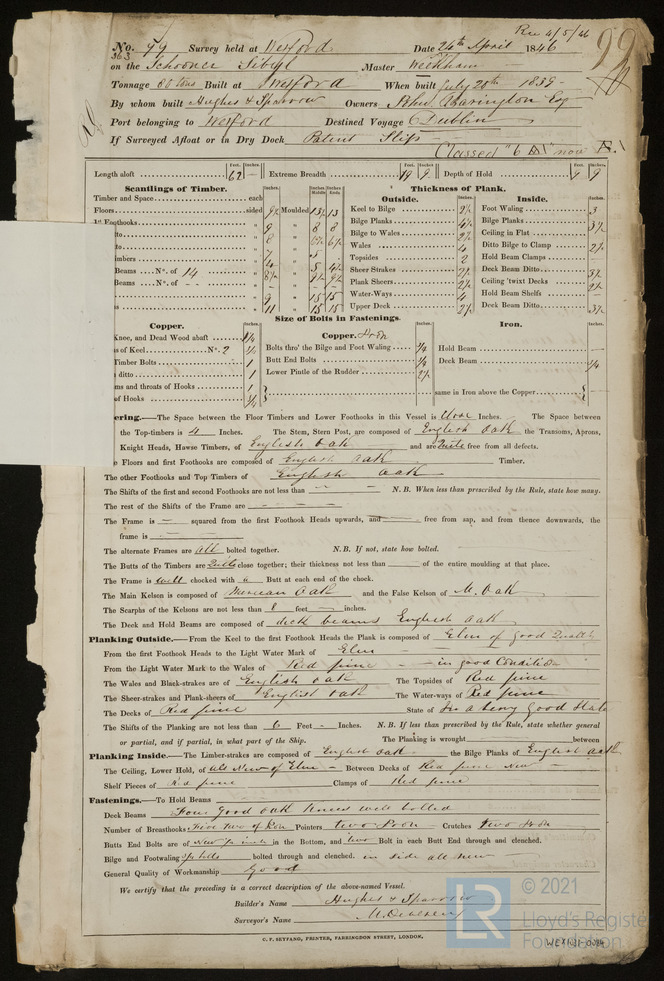 Rec 4/5/46
No. 99 Survey held at Wexford Date 24th April 1846
363
on the Schooner Sibyl Master Wickham
Tonnage 80 tons Built at Wexford When built July 20th 1839
By whom built Hughes & Sparrow Owners John Barington Esq
Port belonging to Wexford Destined Voyage Dublin
If Surveyed Afloat or in Dry Dock Patent Slip
Classed "6 now
Feet. Inches. Feet. Inches. Feet. Inches.
Length aloft 62 — Extreme Breadth 19 9 Depth of Hold 9 9
Scantlings of Timber. Thickness of Plank.
Outside. Inside.
Timber and Space each Keel to Bilge Foot Waling 3
Floors sided Moulded Bilge Planks Bilge Planks
Foothooks 9 " 8 8 Bilge to Wales Ceiling in Flat
8 Wales 4 Ditto Bilge to Clamp
Topsides 2 Hold Beam Clamps
Beams No. of 14 Sheer Strakes Deck Beam Ditto
Beams No. of - - Plank Sheers Ceiling 'twixt Decks
9 " 15 15 Water-Ways 4 Hold Beam Shelfs
11 " 15 15 Upper Deck Deck Beam Ditto
Size of Bolts in Fastenings.
Copper. Copper. Iron Iron.
Knee, and Dead Wood abaft Bolts thro' the Bilge and Foot Waling Hold Beam
of Keel No. 2 Butt End Bolts Deck Beam
Timber Bolts 1 Lower Pintle of the Rudder
ditto 1
and throats of Hooks 1 same in Iron above the Copper
of Hooks
ering.—The Space between the Floor Timbers and Lower Foothooks in this Vessel is Close Inches. The Space between
the Top-timbers is 4 Inches. The Stem, Stern Post, are composed of English Oak the Transoms, Aprons,
Knight Heads, Hawse Timbers, of English Oak and are Quite free from all defects.
Floors and first Foothooks are composed of English Oak Timber.
The other Foothooks and Top Timbers of English Oak
The Shifts of the first and second Foothooks are not less than — N.B. When less than prescribed by the Rule, state how many.
The rest of the Shifts of the Frame are —
The Frame is — squared from the first Foothook Heads upwards, and — free from sap, and from thence downwards, the
frame is —
The alternate Frames are all bolted together. N.B. If not, state how bolted.
The Butts of the Timbers are Quite close together; their thickness not less than — of the entire moulding at that place.
The Frame is well chocked with a Butt at each end of the chock.
The Main Kelson is composed of Oak and the False Kelson of M. Oak
The Scarphs of the Kelsons are not less than feet — inches.
The Deck and Hold Beams are composed of deck beams English Oak
Planking Outside.—From the Keel to the first Foothook Heads the Plank is composed of Elm of good Quality
From the first Foothook Heads to the Light Water Mark of Elm
From the Light Water Mark to the Wales of Red pine — in good Condition
The Wales and Black-strakes are of English Oak The Topsides of Red pine
The Sheer-strakes and Plank-sheers of English Oak The Water-ways of Red pine
The Decks of Red pine State of In a very good State
The Shifts of the Planking are not less than 6 Feet - Inches. N.B. If less than prescribed by the Rule, state whether general
or partial, and if partial, in what part of the Ship. The Planking is wrought between
Planking Inside.—The Limber-strakes are composed of English Oak the Bilge Planks of English Oak
The Ceiling, Lower Hold, of all New of Elm — Between Decks of Red pine New
Shelf Pieces of Red pine Clamps of Red pine
Fastenings.—To Hold Beams
Deck Beams Four good Oak Knees well bolted
Number of Breasthooks Five two of Iron Pointers two Iron Crutches two Iron
Butts End Bolts are of in the Bottom, and two Bolt in each Butt End through and clenched.
Bilge and Footwaling bolted through and clenched. in side all new
General Quality of Workmanship Good
We certify that the preceding is a correct description of the above-named Vessel.
Builder's Name Hughes & Sparrow
Surveyor's Name
C. F. SEYFANG, PRINTER, FARRINGDON STREET, LONDON.
LR
© 2021
Lloyd's Register
Foundation